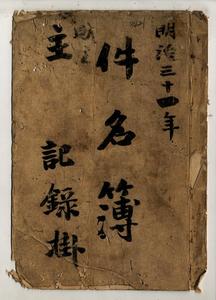 明治三十四年
件名簿
主記録掛